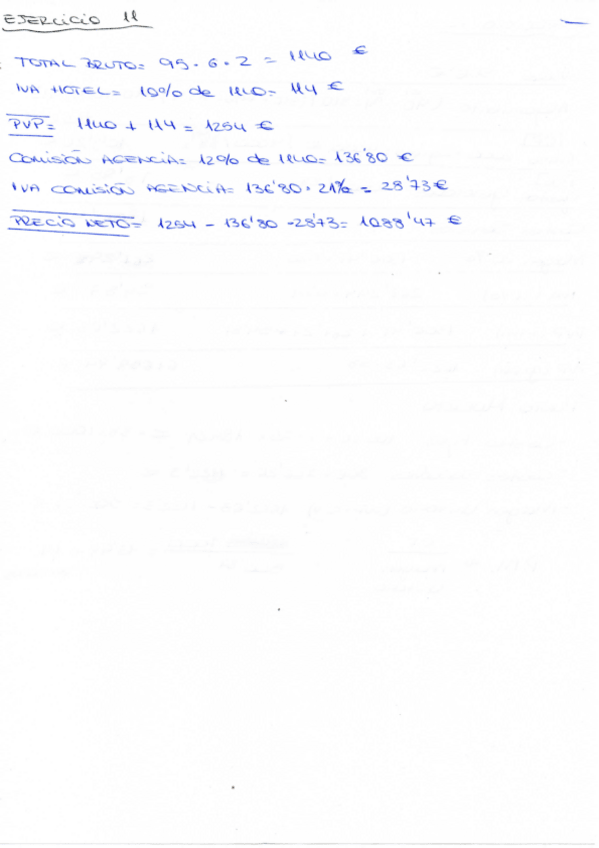 EJERCICIO 11
TOTAL BRUTO= 95 · 6 · 2 = 1140 €
IVA HOTEL= 10% de 1140= 114 €
PVP= 1140 + 114 = 1254 €
COMISIÓN AGENCIA= 12% de 1140= 136'80 €
IVA COMISIÓN AGENCIA= 136'80 · 21% = 28'73 €
PRECIO NETO= 1254 - 136'80 - 28'73= 1088'47 €